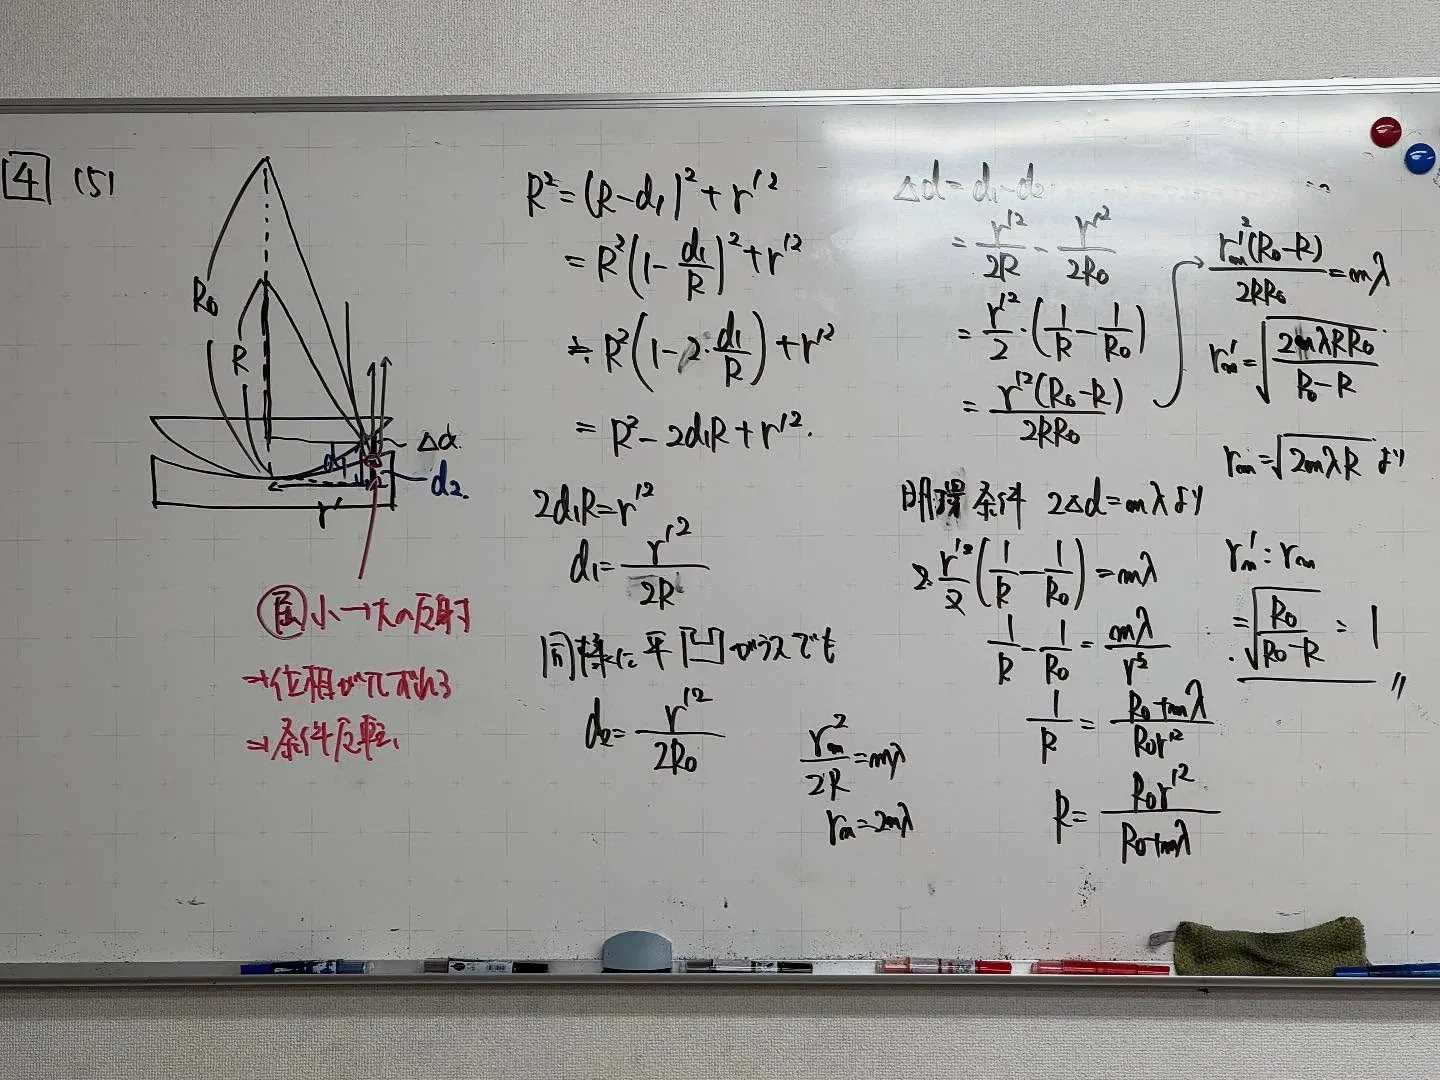 4 (5)
R₀
R
Δd
d₁
d₂
r'
屈 小→大の反射で
→位相がπずれる
→条件反転、
R² = (R-d₁)² + r'²
= R²(1 - d₁/R)² + r'²
≒ R²(1 - 2・d₁/R) + r'²
= R² - 2d₁R + r'².
2d₁R = r'²
d₁ = r'²/2R
同様に平凹レンズでも
d₂ = r'²/2R₀
rₘ²/2R = mλ
rₘ = 2mλ
Δd = d₁ - d₂
= r'²/2R - r'²/2R₀
= r'²/2・(1/R - 1/R₀)
= r'²(R₀-R)/2RR₀
明環条件 2Δd = mλより
2・r'²/2(1/R - 1/R₀) = mλ
1/R - 1/R₀ = mλ/r'²
1/R = R₀+mλ/R₀r'²
R = R₀r'²/R₀+mλ
rₘ'²(R₀-R)/2RR₀ = mλ
rₘ' = √2mλRR₀/R₀-R
rₘ = √2mλR より
rₘ' : rₘ
= √R₀/R₀-R : 1
〃